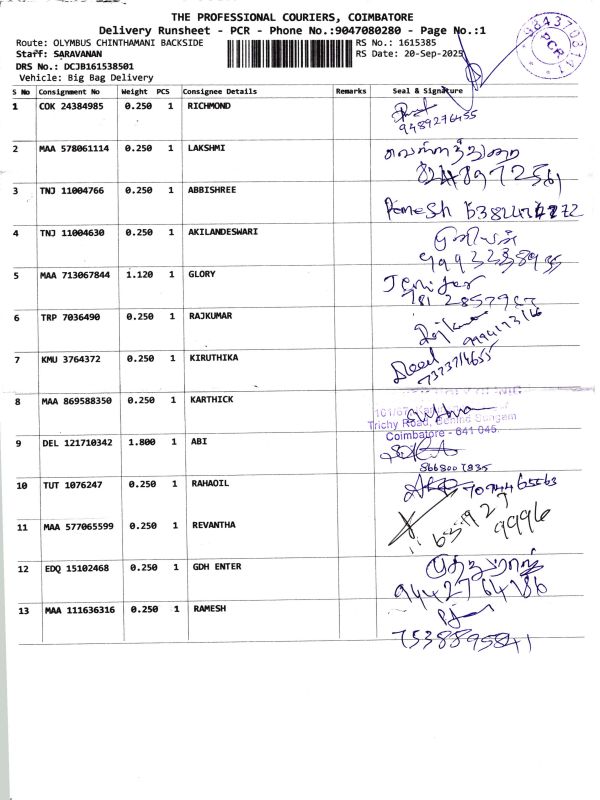 THE PROFESSIONAL COURIERS, COIMBATORE
Delivery Runsheet - PCR - Phone No.:9047080280 - Page No.:1
Route: OLYMBUS CHINTHAMANI BACKSIDE RS No.: 1615385
Staff: SARAVANAN RS Date: 20-Sep-2025
DRS No.: DCJB161538501
Vehicle: Big Bag Delivery
PCR
S No Consignment No Weight PCS Consignee Details Remarks Seal & Signature
1 COK 24384985 0.250 1 RICHMOND
9489276455
2 MAA 578061114 0.250 1 LAKSHMI
3 TNJ 11004766 0.250 1 ABBISHREE
4 TNJ 11004630 0.250 1 AKILANDESWARI
5 MAA 713067844 1.120 1 GLORY Jenifer
6 TRP 7036490 0.250 1 RAJKUMAR
7 KMU 3764372 0.250 1 KIRUTHIKA
7373714655
8 MAA 869588350 0.250 1 KARTHICK
Trichy Road, Behind Sungam
Coimbatore - 641 045.
9 DEL 121710342 1.800 1 ABI
8668007835
10 TUT 1076247 0.250 1 RAHAOIL
11 MAA 577065599 0.250 1 REVANTHA
12 EDQ 15102468 0.250 1 GDH ENTER
9442764786
13 MAA 111636316 0.250 1 RAMESH
7538895841